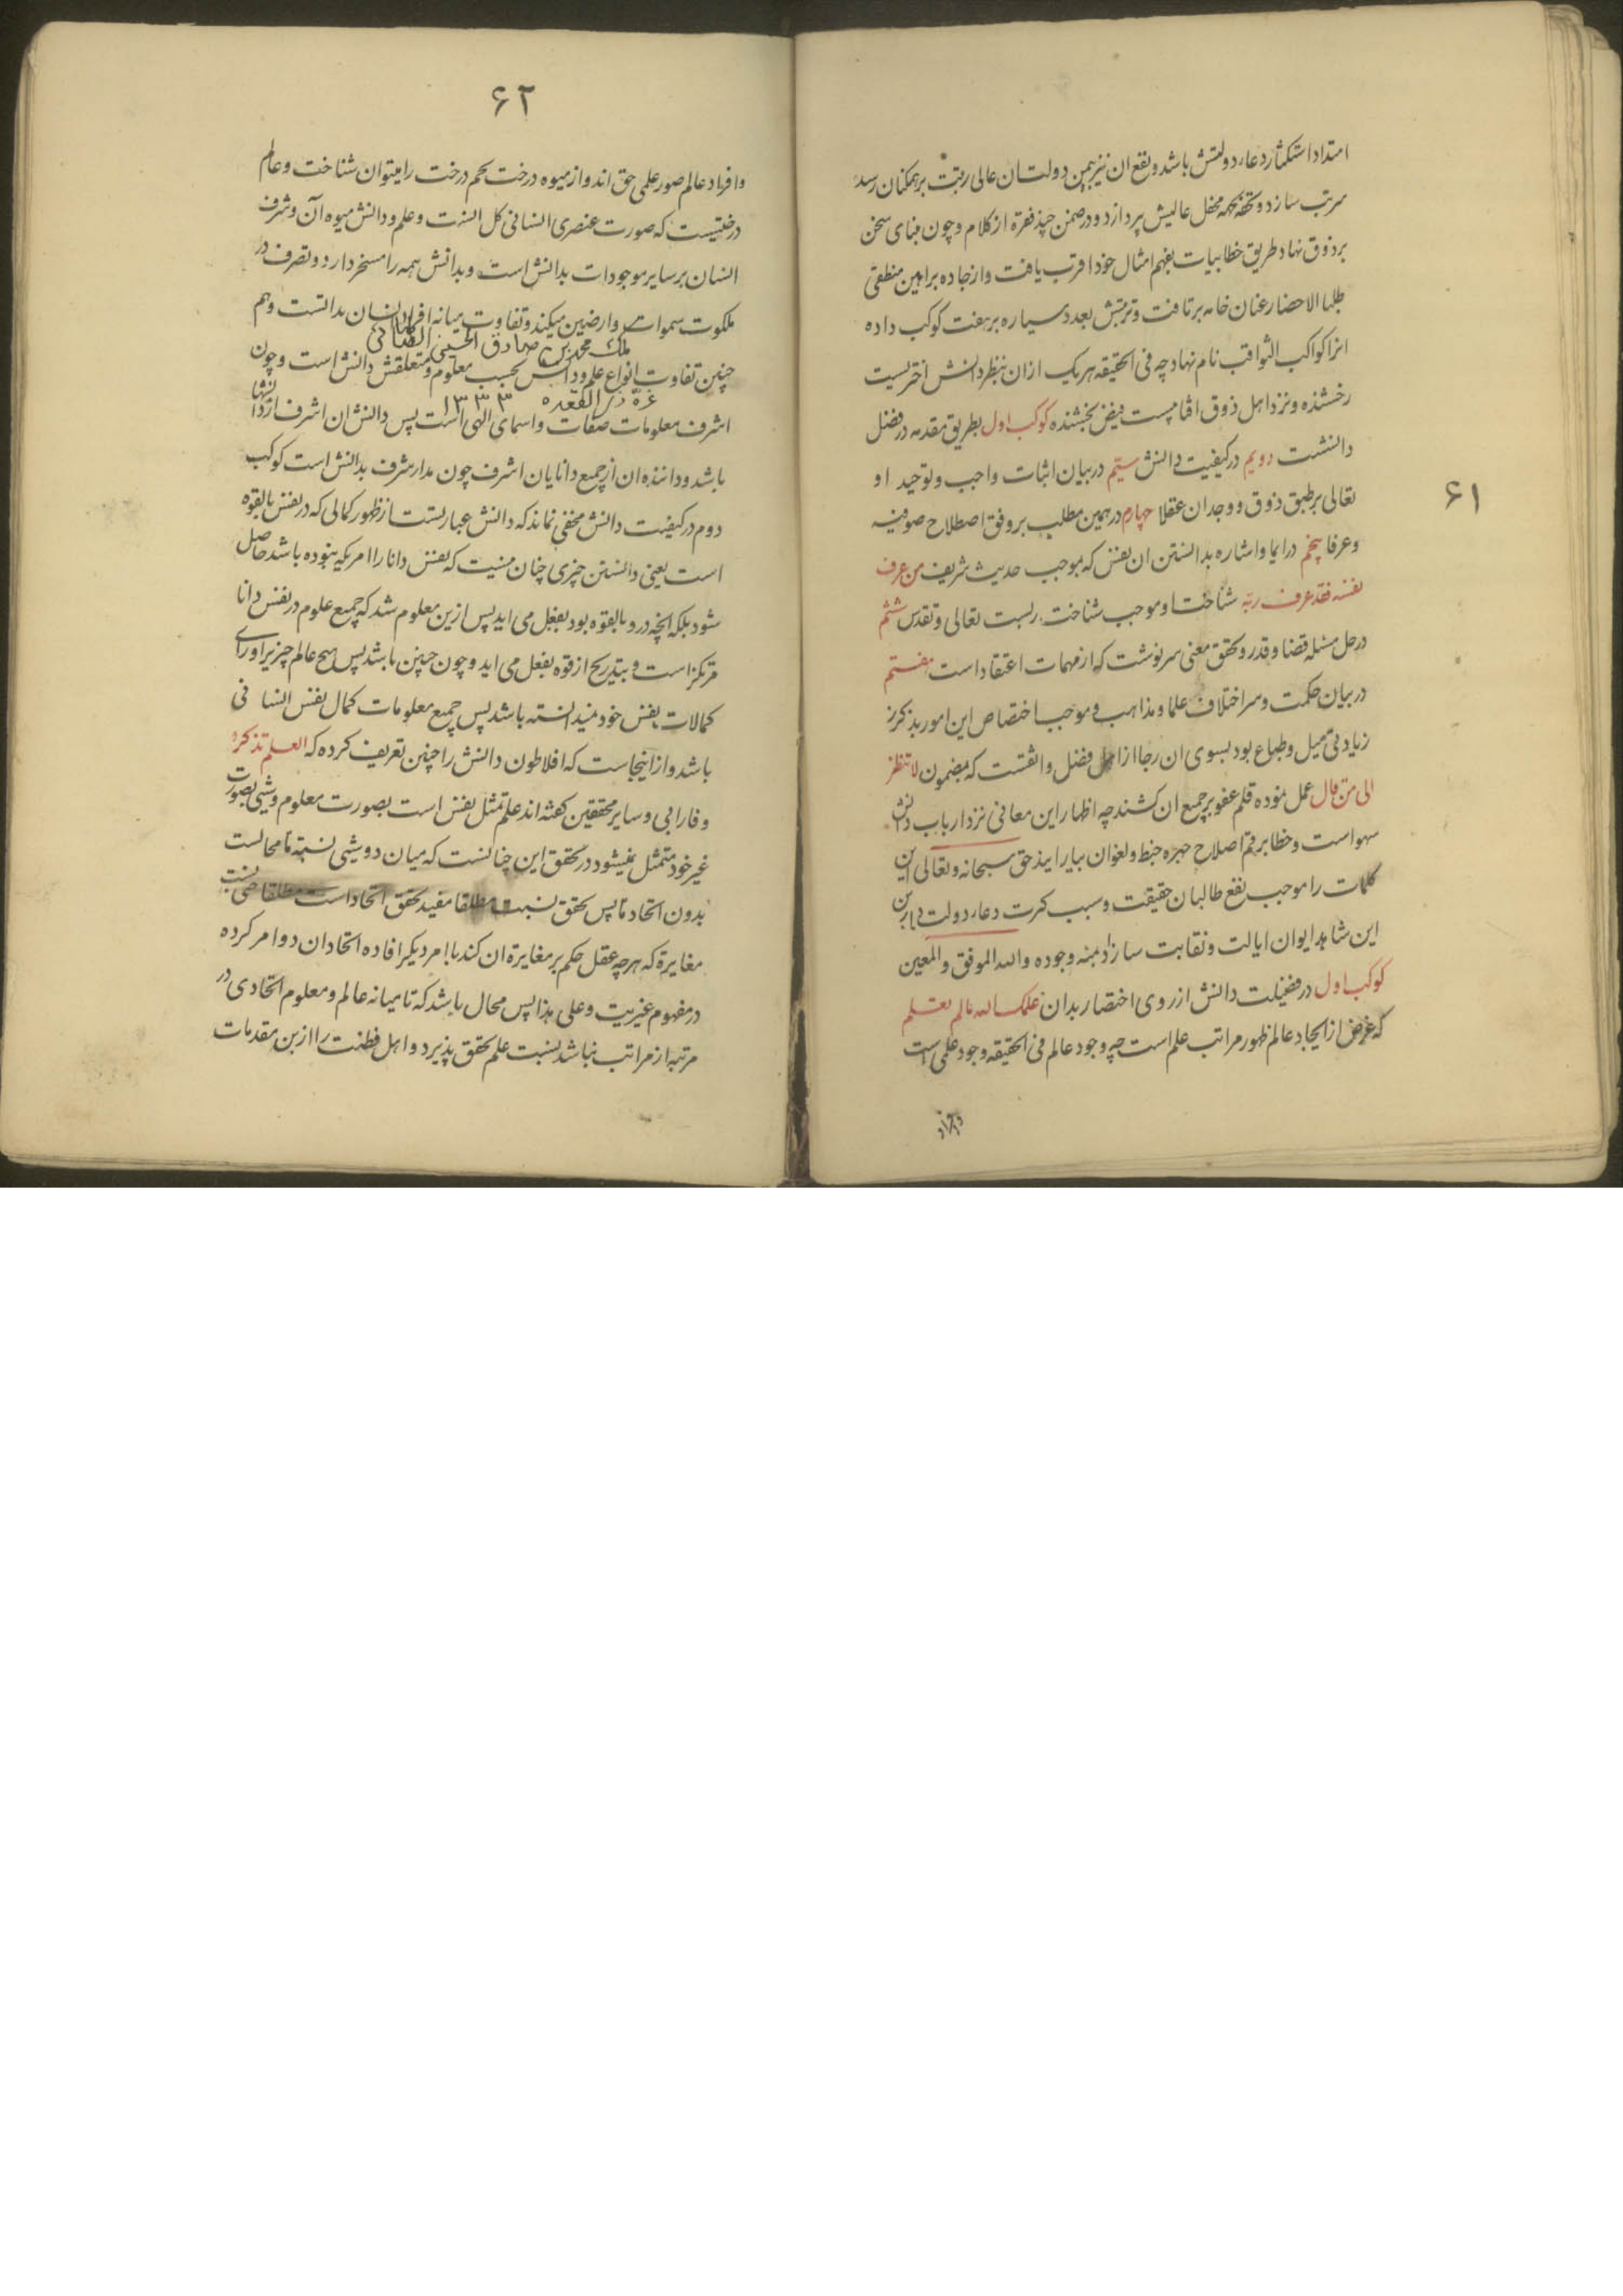 ۶۱
امتداد استکثار دعاء دولتش باشد و نفع ان نیز بهمین دولت ان عالی رتبت بر همکنان رسد
مرتب سازد و تحفه محفل عالیش پردازد و در ضمن چند فقره از کلام و چون مبنای سخن
بر ذوق نهاد طریق خطابیات بفهم امثال خود اقرب یافت و از جاده براهین منطقی
طلبا الاحضار عنان خامه برتافت و ترتبش بعدد سیاره بر هفت کوکب داده
انرا کواکب الثواقب نام نهاد چه فی الحقیقه هر یک ازان بنظر دانش اختریست
رخشنده و نزد اهل ذوق افتابیست فیض بخشنده کوکب اول بطریق مقدمه در فضل
دانشست دویم در کیفیت دانش سیم در بیان اثبات واجب و توحید او
تعالی بر طبق ذوق و وجدان عقلا چهارم در همین مطلب بر وفق اصطلاح صوفیه
و عرفا پنجم در ایما و اشاره بدانستن ان نفس که موجب حدیث شریف من عرف
نفسه فقد عرف ربه شناخت او موجب شناخت ربست تعالی و تقدس ششم
در حل مسئله قضا و قدر و تحقق معنی سرنوشت که از مهمات اعتقاد است هفتم
در بیان حکمت و سر اختلاف علما و مذاهب و موجب اختصاص این امور بذکر
زیادبی میل و طباع بود بسوی ان رجا از اهل فضل واثقست که بمضمون لا تنظر
الی من قال عمل نموده قلم عفو بر جمیع ان کشند چه اظهار این معانی نزد ارباب دانش
سهو است و خطا برقم اصلاح چهره خبط و لغوان بیارایند حق سبحانه و تعالی این
کلمات را موجب نفع طالبان حقیقت و سبب کثرت دعاء دولت
این شاهد ایوان ایالت و نقابت سازاد بمنه وجوده والله الموفق والمعین
کوکب اول در فضیلت دانش از روی اختصار بدان علمک الله مالم تعلم
که غرض از ایجاد عالم ظهور مراتب علم است چه وجود عالم فی الحقیقه وجود علمی است
و افراد
۶۲
و افراد عالم صور علمی حق اند و از میوه درخت تخم درخت را میتوان شناخت و عالم
درختیست که صورت عنصری انسانی کل انست و علم و دانش میوه آن و شرف
انسان بر سایر موجودات بدانش است و بدانش همه را مسخر دارد و تصرف در
ملکوت سموات و ارضین میکند و تفاوت میانه افراد انسان بدانست و هم
ملک محمد بن صادق الحسینی الطباطبائی
چنین تفاوت انواع علم و دانش بحسب معلوم و متعلقش دانش است و چون
غرة ذی القعده ۱۳۳۳
اشرف معلومات صفات و اسمای الهی است پس دانش ان اشرف از دانشها
باشد و داننده ان از جمیع دانایان اشرف چون مدار شرف بدانش است کوکب
دوم در کیفیت دانش مخفی نماند که دانش عبارتست از ظهور کمالی که در نفس بالقوه
است یعنی دانستن چیزی چنان نیست که نفس دانا را امریکه نبوده باشد حاصل
شود بلکه انچه در و بالقوه بود بفعل می اید پس ازین معلوم شد که جمیع علوم در نفس دانا
مرتکز است و بتدریج از قوه بفعل می اید و چون چنین باشد پس هیچ عالم چیزیرا ورای
کمالات نفس خود نمیدانسته باشد پس جمیع معلومات کمال نفس انسانی
باشد و از اینجاست که افلاطون دانش را چنین تعریف کرده که العلم تذکره
و فارابی و سایر محققین گفته اند علم تمثل نفس است بصورت معلوم و شیی بصورت
غیر خود متمثل نمیشود در تحقق این چنانست که میان دو شیی نسبة ما محالست
بدون اتحاد ما پس تحقق نسبت مطلقا مفید تحقق اتحاد است مطلقا حتی نسبت
مغایرة که هر چه عقل حکم بر مغایرة ان کند با امر دیگر افاده اتحاد ان دو امر کرده
در مفهوم غیریت و علی هذا پس محال باشد که تا میانه عالم و معلوم اتحادی در
مرتبه از مراتب نباشد نسبت علم تحقق پذیرد و اهل فطنت را ازین مقدمات